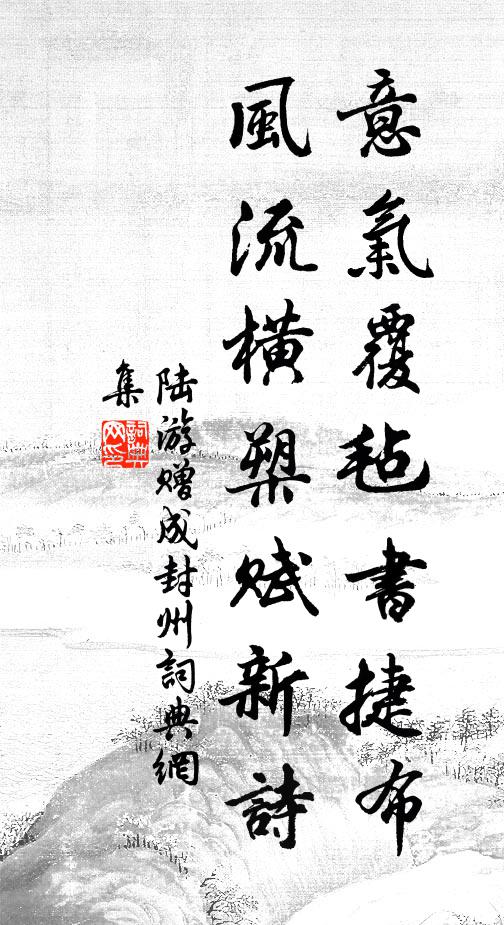 意氣覆毡書捷布
風流橫槊賦新詩
陆游赠成封州詞典網
集